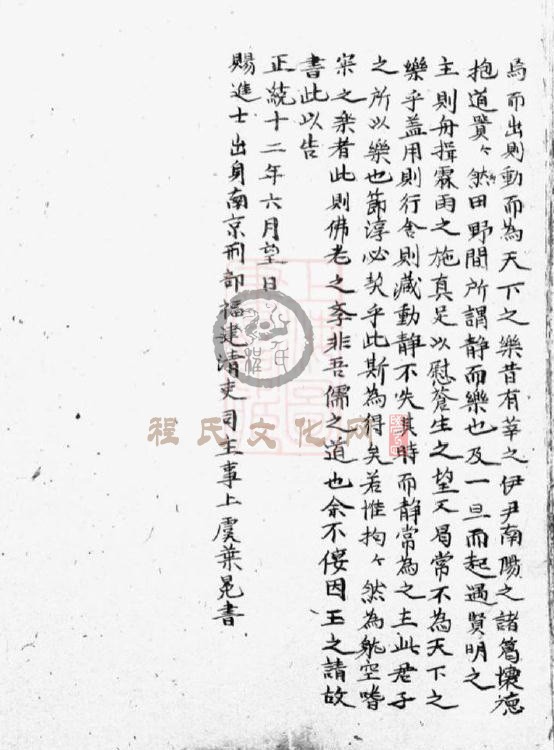 焉而出則動而為天下之樂昔有莘之伊尹南陽之諸葛懷德
抱道囂々然田野間所謂静而樂也及一旦而起遇賢明之
主則舟揖霖雨之施真足以慰蒼生之望又曷常不為天下之
樂乎盖用則行舍則藏動静不失其時而静常為之主此君子
之所以樂也節淳必契乎此斯為得矣若惟拘々然為躭空嗜
寂之樂者此則佛老之李非吾儒之道也余不佞因王之請故
書此以告
正統十二年六月望日
賜進士出身南京刑部福建清吏司主事上虞葉冕書
程氏文化网